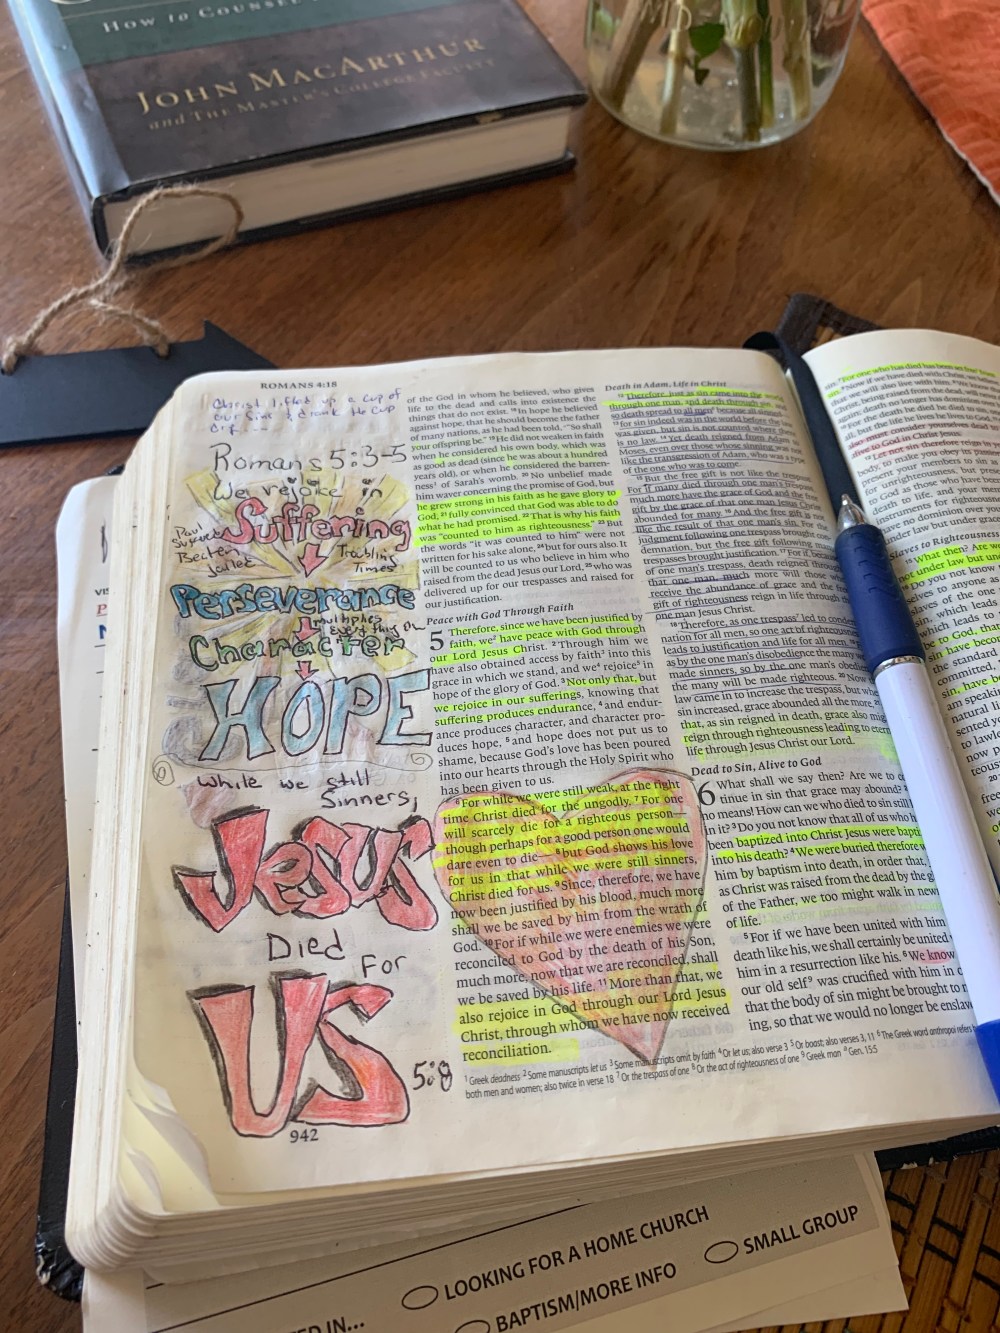 HOW TO COUNSEL
JOHN MACARTHUR
and THE MASTER'S COLLEGE FACULTY
ROMANS 4:18
Christ lifted up a cup of
our sins & drank the cup
Romans 5:3-5
We rejoice in
Suffering
Paul
Beaten
Jailed
Troubling
Times
Perseverance
multiplies
Character
HOPE
While we still
Sinners,
Jesus
Died
For
US
5:8
942
of the God in whom he believed, who gives
life to the dead and calls into existence the
things that do not exist. 18 In hope he believed
against hope, that he should become the father
of many nations, as he had been told, "So shall
your offspring be." 19 He did not weaken in faith
when he considered his own body, which was
as good as dead (since he was about a hundred
years old), or when he considered the barren-
ness of Sarah's womb. 20 No unbelief made
him waver concerning the promise of God, but
he grew strong in his faith as he gave glory to
God, 21 fully convinced that God was able to do
what he had promised. 22 That is why his faith
was "counted to him as righteousness." 23 But
the words "it was counted to him" were not
written for his sake alone, 24 but for ours also. It
will be counted to us who believe in him who
raised from the dead Jesus our Lord, 25 who was
delivered up for our trespasses and raised for
our justification.
Peace with God Through Faith
5 Therefore, since we have been justified by
faith, we have peace with God through
our Lord Jesus Christ. 2 Through him we
have also obtained access by faith into this
grace in which we stand, and we rejoice in
hope of the glory of God. 3 Not only that, but
we rejoice in our sufferings, knowing that
suffering produces endurance, 4 and endur-
ance produces character, and character pro-
duces hope, 5 and hope does not put us to
shame, because God's love has been poured
into our hearts through the Holy Spirit who
has been given to us.
6 For while we were still weak, at the right
time Christ died for the ungodly. 7 For one
will scarcely die for a righteous person—
though perhaps for a good person one would
dare even to die— 8 but God shows his love
for us in that while we were still sinners,
Christ died for us. 9 Since, therefore, we have
now been justified by his blood, much more
shall we be saved by him from the wrath of
God. 10 For if while we were enemies we were
reconciled to God by the death of his Son,
much more, now that we are reconciled, shall
we be saved by his life. 11 More than that, we
also rejoice in God through our Lord Jesus
Christ, through whom we have now received
reconciliation.
Death in Adam, Life in Christ
12 Therefore, just as sin came into the world
through one man, and death through sin,
so death spread to all men because
for sin indeed was in the world before the law
was given, but sin is not counted where there
is no law. 14 Yet death reigned from Adam
Moses, even over those whose sinning was not
like the transgression of Adam, who was a type
of the one who was to come.
15 But the free gift is not like the trespass.
For if many died through one man's trespass,
much more have the grace of God and the free
gift by the grace of that one man Jesus Christ
abounded for many. 16 And the free gift is not
like the result of that one man's sin. For the
judgment following one trespass brought con-
demnation, but the free gift following many
trespasses brought justification. 17 For if, because
of one man's trespass, death reigned through
that one man, much more will those who
receive the abundance of grace and the free
gift of righteousness reign in life through the
one man Jesus Christ.
18 Therefore, as one trespass led to condem-
nation for all men, so one act of righteousness
leads to justification and life for all men.
as by the one man's disobedience the many were
made sinners, so by the one man's obedience
the many will be made righteous. 20 Now the
law came in to increase the trespass, but where
sin increased, grace abounded all the more,
that, as sin reigned in death, grace also might
reign through righteousness leading to eternal
life through Jesus Christ our Lord.
Dead to Sin, Alive to God
6 What shall we say then? Are we to
tinue in sin that grace may abound?
no means! How can we who died to sin still
in it? 3 Do you not know that all of us who
been baptized into Christ Jesus were bapti
into his death? 4 We were buried therefore
him by baptism into death, in order that,
as Christ was raised from the dead by the
of the Father, we too might walk in new
of life.
5 For if we have been united with him
death like his, we shall certainly be united
him in a resurrection like his. 6 We know
our old self was crucified with him in
that the body of sin might be brought to
ing, so that we would no longer be enslav
1 Greek deadness 2 Some manuscripts let us 3 Some manuscripts omit by faith 4 Or let us; also verse 3 5 Or boast; also verses 3, 11 6 The Greek word anthropoi refers
both men and women; also twice in verse 18 7 Or the trespass of one 8 Or the act of righteousness of one 9 Greek man a Gen. 15:5
Slaves to Righteousness
15 What then? Are we
not under law but un
Do you not know
LOOKING FOR A HOME CHURCH
SMALL GROUP
BAPTISM/MORE INFO
IN...